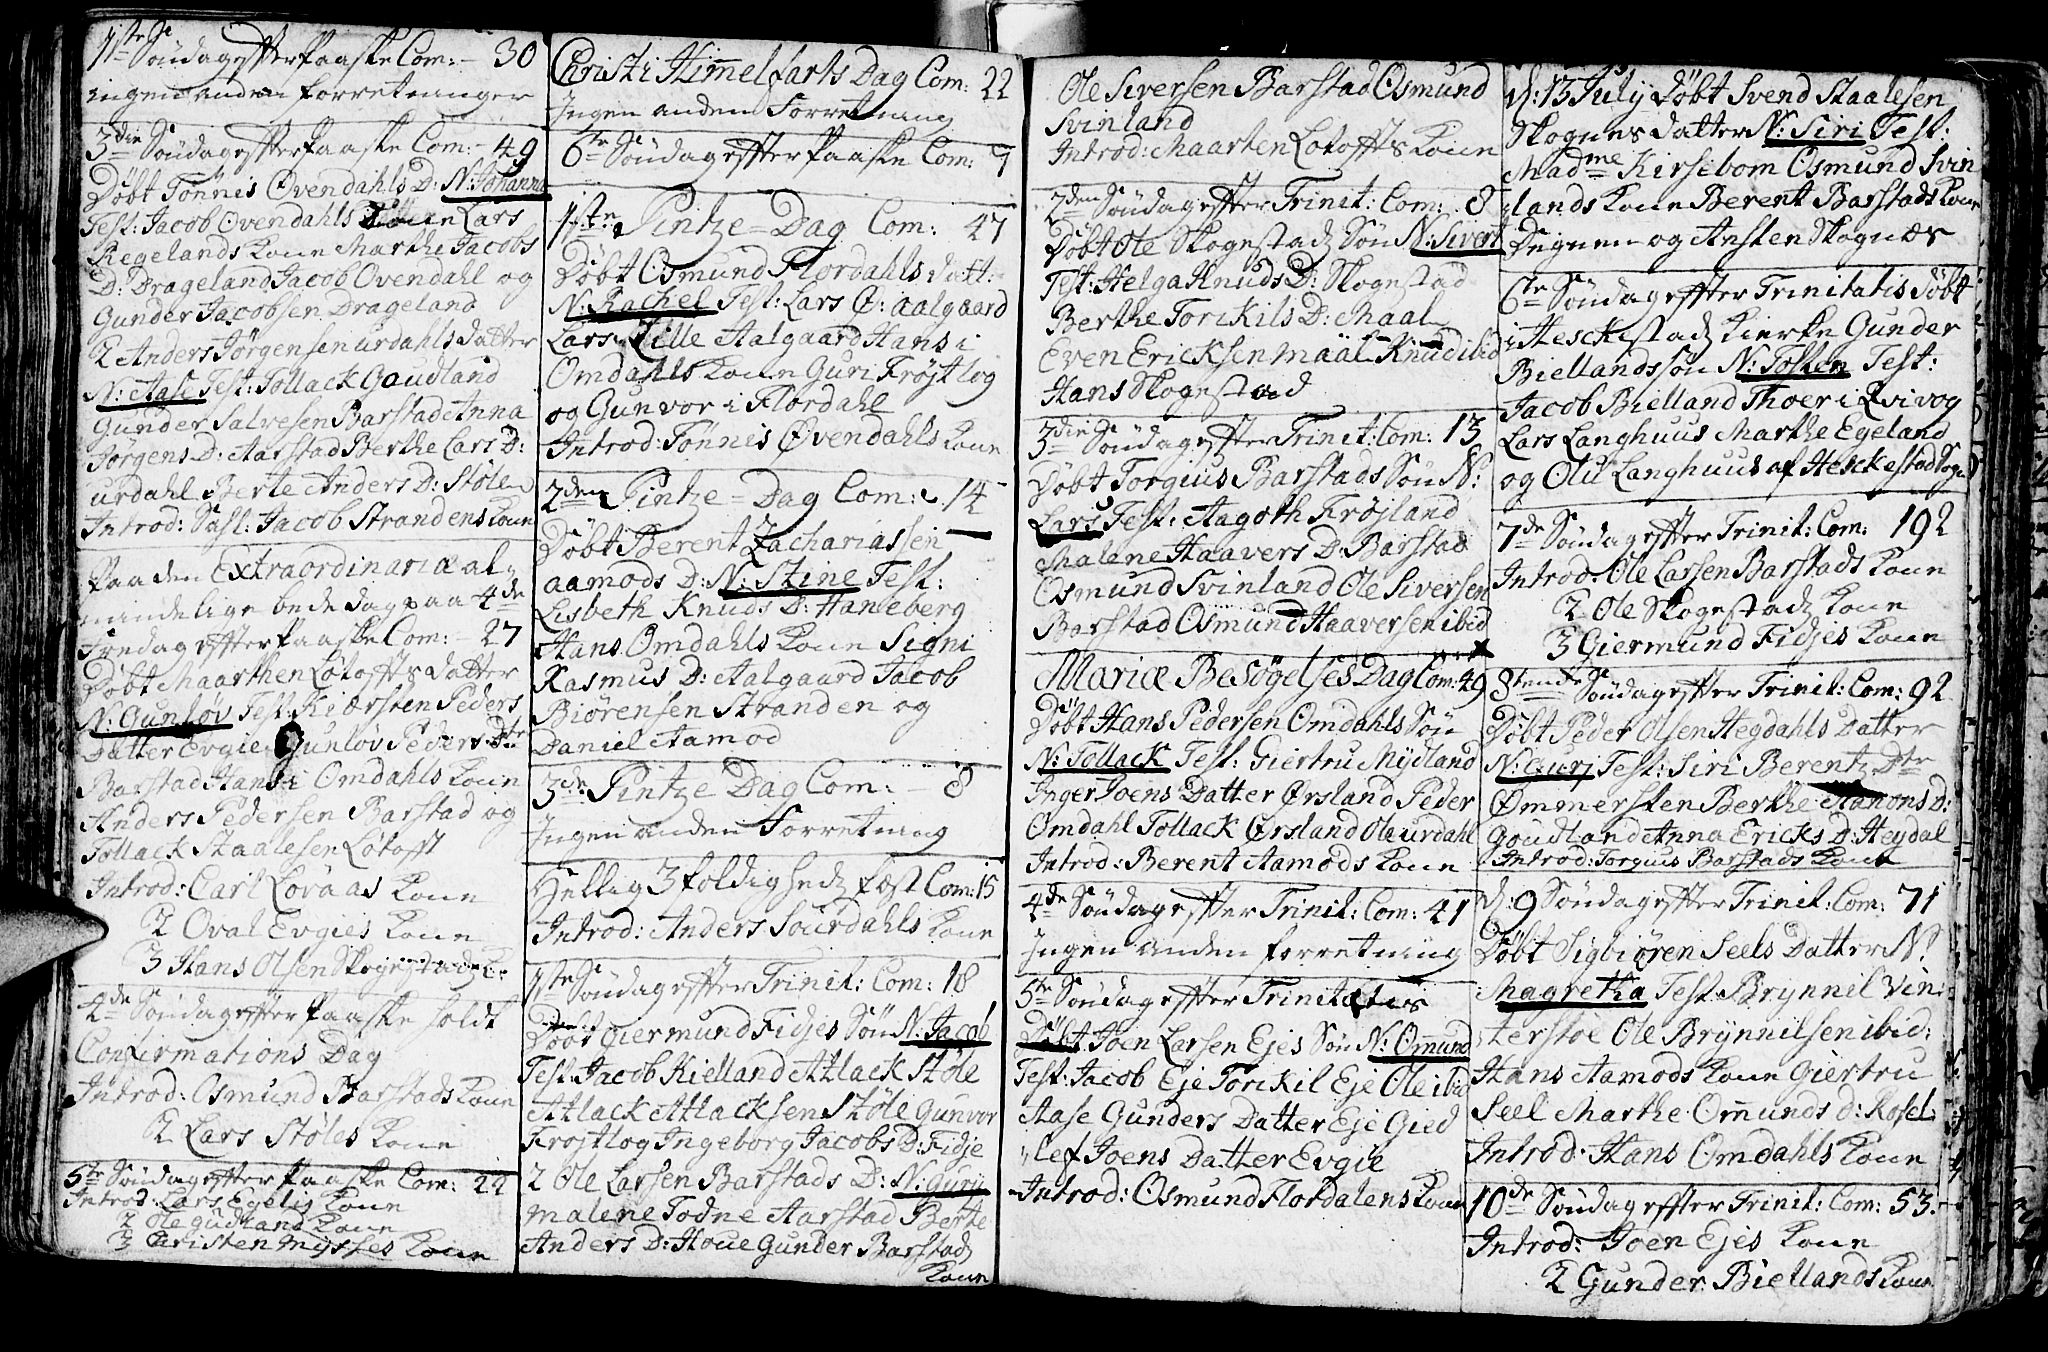 1ste Söndag effter Paaske Com: - 30
ingen anden forretninger
3die Söndag effter Paaske Com: - 49
Døbt Tønnis Ovendahls D: N: Johanna
Test: Jacob Ovendahls Kone Lars
Regelands Kone Marthe Jacobs
D: Drageland Jacob Ovendahl og
Gunder Jacobsen Drageland
2 Anders Jørgensen urdahls datter
N: Aase Test: Tollack Goudland
Gunder Salvesen Barstad Anna
Jörgens D: Aarstad Berthe Lars D:
urdahl Berte Anders D: Støle
Introd: Jacob Strandens Kone
Paa den Extraordinariæ al-
mindelige bededag paa 4de
Fredag effter Paaske Com: - 27
Døbt Maarthen Løtoffts datter
N: Gunløv Test: Kiersten Peders
Datter Evgie Gunlov Peders Dtr
Barstad Hans i Omdahls Kone
Anders Pedersen Barstad og
Tollack Staalesen Løtofft
Introd: Carl Lovaas Kone
2 Oval Evgies Kone
3 Hans Olsen Skogestadz K:
4de Söndag effter Paaske holdt
Confirmations Dag
Introd: Osmund Barstads Kone
2 Lars Støles Kone
5te Söndag effter Paaske Com: 22
Introd: Lars Egelis Kone
2 Ole Gudland Kone
3 Christen Mysses Kone
Christi Himmelfarts Dag Com: 22
Ingen anden Forretning
6te Söndag effter Paaske Com: 7
1ste Pintze-Dag Com: 47
Døbt Osmund Flordahls datt:
N: Rachel Test: Lars O: Aalgaard
Lars Lille Aalgaard Hans i
Omdahls Kone Guri Frøjtlog
og Gunvor i Flordahl
Introd: Tønnis Øvendahls Kone
2den Pintze-Dag Com: 14
Døbt Berent Zachariassen
aamods D: N: Stine Test:
Lisbeth Knuds D: Haneberg
Hans Omdahls Kone Signi
Rasmus D: Aalgaard Jacob
Biörensen Stranden og
Daniel Aamod
3de Pintze Dag Com: - 8
Ingen anden Forretning
Hellig 3foldighedz fæst Com: 15
Introd: Anders Sourdahls Kone
1ste Söndag effter Trinit: Com: 18
Døbt Giermund Fidjes Sön N: Jacob
Test: Jacob Kielland Atlack Støle
Atlack Atlacksen Støle Gunvor
Frojtlog Ingeborg Jacobs D: Fidje
2 Ole Larsen Barstads D: N: Gurj
Malene Todne Aarstad Berte
Anders D: Houe Gunder Barstadz
Kone
Ole Siversen Barstad Osmund
Svinland
Introd: Maarten Lotoffts Kone
2den Söndag effter Trinit: Com: 8
Døbt Ole Skogestadz Sön N: Sivert
Test: Helga Knuds D: Skogestad
Berthe Torckils D: Maal
Even Ericksen Maal Knud ibid
Hans Skogestad
3die Söndag effter Trinit: Com: 13
Døbt Torgius Barstads Sön N:
Lars Test: Aagoth Frøjland
Malene Haavers D: Barstad
Osmund Svinland Ole Siversen
Barstad Osmund Haaversen ibid
Mariæ Besögelses Dag Com: 49
Døbt Hans Pedersen Omdahls Sön
N: Tollack Test: Giertru Mydland
Inger Joens Datter Ørsland Peder
Omdahl Tollack Ørsland Ole urdahl
Introd: Berent Aamods Kone
4de Söndag effter Trinit: Com: 41
Ingen anden forretning
5te Söndag effter Trinitatis
Døbt Joen Larsen Ejes Sön N: Omund
Test: Jacob Eje Torckil Eje Ole ibid
Aase Gunders Datter Eje Gied
lef Joens Datter Evgie
Introd: Osmund Flordalens Kone
d: 13 July Døbt Svend Staalesen
Skognes datter N: Siri Test:
Madme Kirsebom Osmund Svin
lands Kone Berent Barstads Kone
Degnen og Ansten Skognæs
6te Söndag effter Trinitatis Døbt
i Heskestadz Kierke Gunder
Biellands sön N: Tosten Test:
Jacob Bielland Thoer i Qvivog
Lars Langhuus Marthe Egeland
og Olu Langhuus af Heskestad Sogn
7de Söndag effter Trinit: Com: 192
Introd: Ole Larsen Barstads Kone
2 Ole Skogestadz Kone
3 Giermund Fidjes Kone
8tende Söndag effter Trinit: Com: 92
Døbt Peder Olsen Hegdahls Datter
N: Gurj Test: Siri Berentz Dtr
Ømmersten Berthe Haaons D:
Goudland Anna Ericks D: Hegdal
Introd: Torgius Barstads Kone
d: 9 Söndag effter Trinit: Com: 71
Døbt Sigbiören Seels Datter N:
Magretha Test: Brynnil Vin
terstoe Ole Brynnilsen ibid:
Hans Aamods Kone Giertru
Seel Marthe Omunds d: Rosel
Introd: Hans Omdahls Kone
10de Söndag effter Trinit: Com: 53.
Introd: Joen Ejes Kone
2 Gunder Biellands Kone